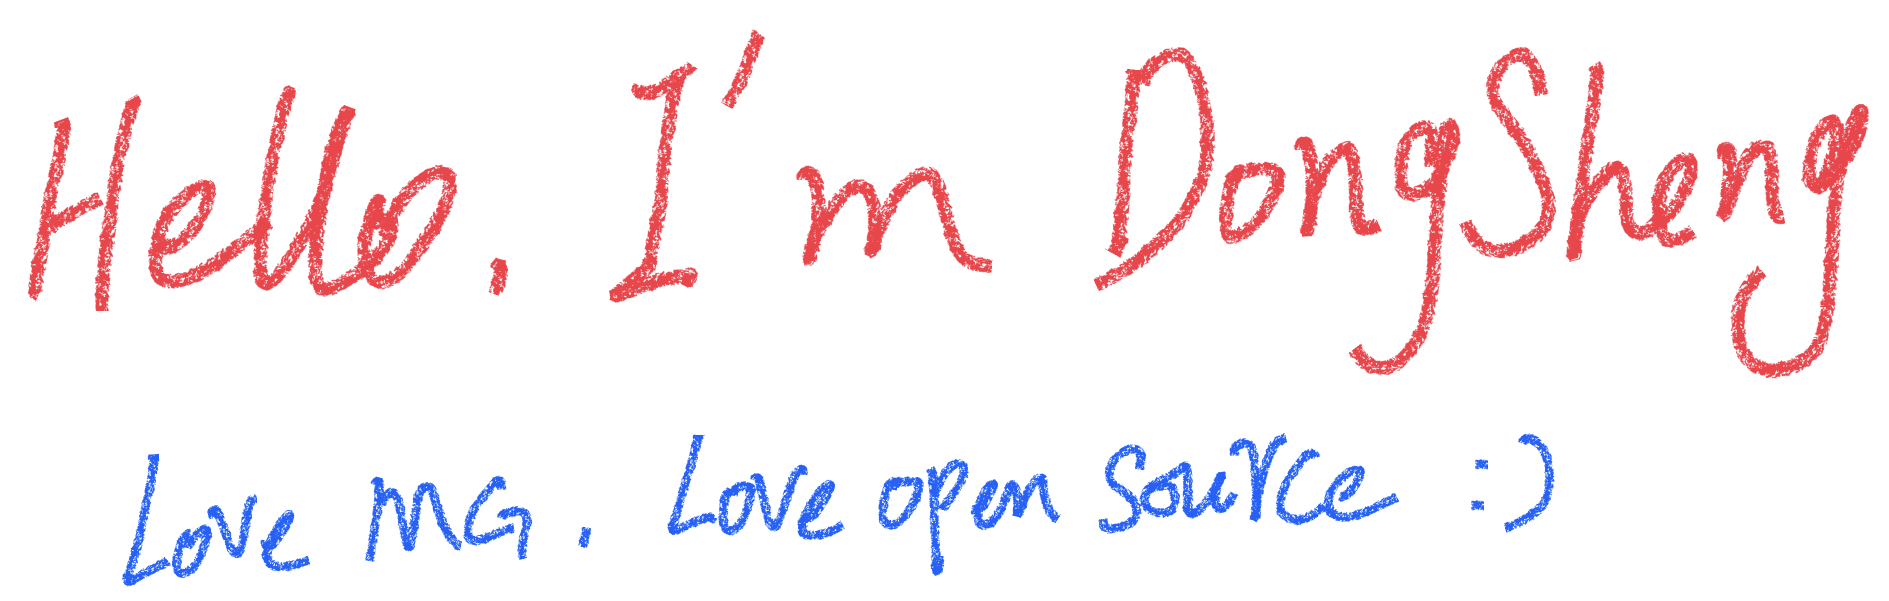 Hello. I'm DongSheng
Love MG. Love open source :)